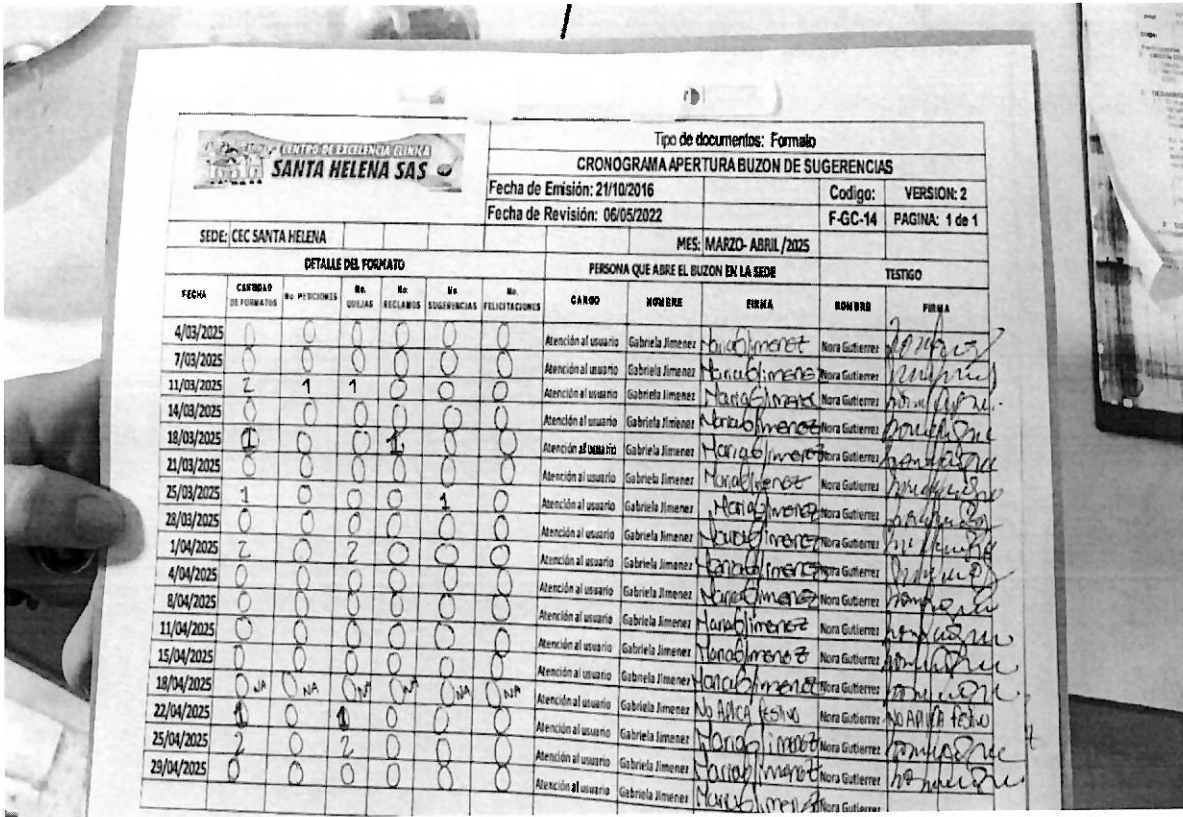 CENTRO DE EXCELENCIA CLINICA
SANTA HELENA SAS
Tipo de documentos: Formato
CRONOGRAMA APERTURA BUZON DE SUGERENCIAS
Fecha de Emisión: 21/10/2016 Codigo: VERSION: 2
Fecha de Revisión: 06/05/2022 F-GC-14 PAGINA: 1 de 1
SEDE: CEC SANTA HELENA MES: MARZO- ABRIL /2025
DETALLE DEL FORMATO PERSONA QUE ABRE EL BUZON EN LA SEDE TESTIGO
FECHA CANTIDAD DE FORMATOS No PETICIONES No. QUEJAS No. RECLAMOS No. SUGERENCIAS No. FELICITACIONES CARGO NOMBRE FIRMA NOMBRE FIRMA
4/03/2025 0 0 0 0 0 0 Atención al usuario Gabriela Jimenez Maria G Jimenez Nora Gutierrez
7/03/2025 0 0 0 0 0 0 Atención al usuario Gabriela Jimenez Maria G Jimenez Nora Gutierrez
11/03/2025 2 1 1 0 0 0 Atención al usuario Gabriela Jimenez Maria G Jimenez Nora Gutierrez
14/03/2025 0 0 0 0 0 0 Atención al usuario Gabriela Jimenez Maria G Jimenez Nora Gutierrez
18/03/2025 1 0 0 1 0 0 Atención al usuario Gabriela Jimenez Maria G Jimenez Nora Gutierrez
21/03/2025 0 0 0 0 0 0 Atención al usuario Gabriela Jimenez Maria G Jimenez Nora Gutierrez
25/03/2025 1 0 0 0 1 0 Atención al usuario Gabriela Jimenez Maria G Jimenez Nora Gutierrez
28/03/2025 0 0 0 0 0 0 Atención al usuario Gabriela Jimenez Maria G Jimenez Nora Gutierrez
1/04/2025 2 0 2 0 0 0 Atención al usuario Gabriela Jimenez Maria G Jimenez Nora Gutierrez
4/04/2025 0 0 0 0 0 0 Atención al usuario Gabriela Jimenez Maria G Jimenez Nora Gutierrez
8/04/2025 0 0 0 0 0 0 Atención al usuario Gabriela Jimenez Maria G Jimenez Nora Gutierrez
11/04/2025 0 0 0 0 0 0 Atención al usuario Gabriela Jimenez Maria G Jimenez Nora Gutierrez
15/04/2025 0 0 0 0 0 0 Atención al usuario Gabriela Jimenez Maria G Jimenez Nora Gutierrez
18/04/2025 0 NA 0 NA 0 NA 0 NA 0 NA 0 NA Atención al usuario Gabriela Jimenez No APlICA festivo Nora Gutierrez No APlICA festivo
22/04/2025 1 0 1 0 0 0 Atención al usuario Gabriela Jimenez Maria G Jimenez Nora Gutierrez
25/04/2025 2 0 2 0 0 0 Atención al usuario Gabriela Jimenez Maria G Jimenez Nora Gutierrez
29/04/2025 0 0 0 0 0 0 Atención al usuario Gabriela Jimenez Maria G Jimenez Nora Gutierrez